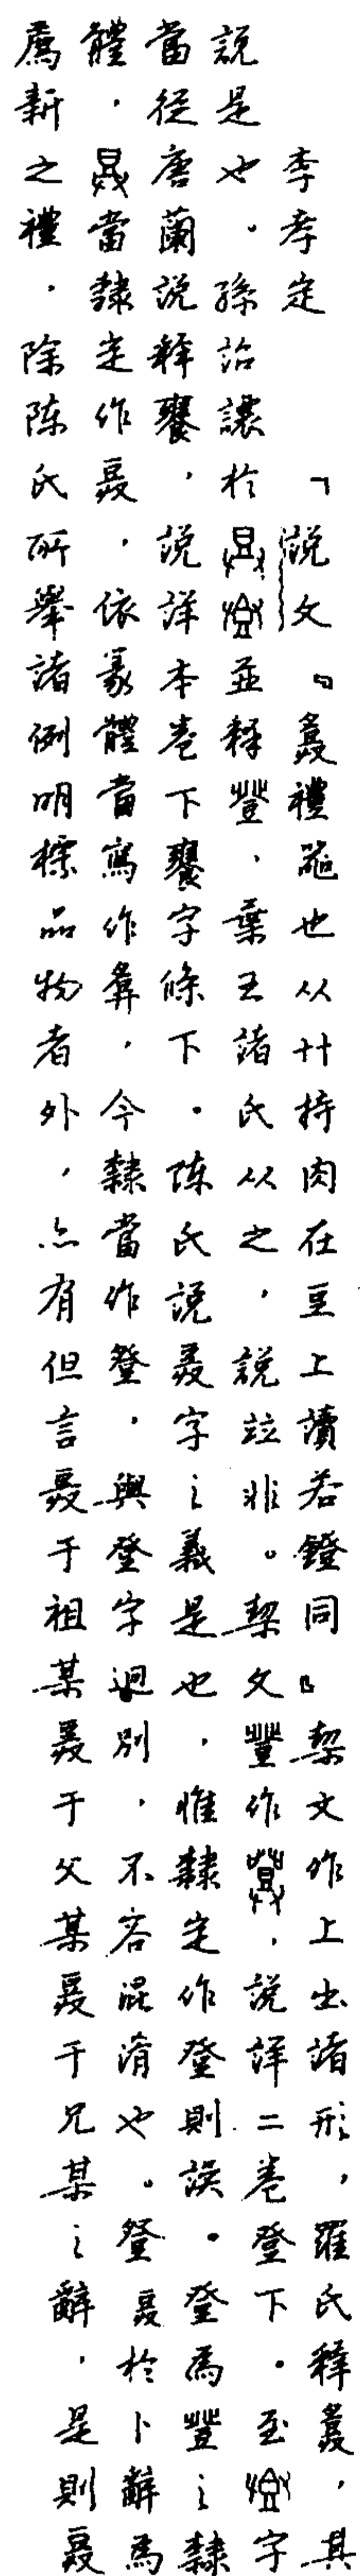 李孝定 「說文『豋禮器也从廾持肉在豆上讀若鐙同』契文作上出諸形,羅氏釋豋,其
說是也。孫詒讓於並釋,葉王諸氏从之,說竝非。契文作,說詳二卷登下。至字
當從唐蘭說釋饔,說詳本卷下饔字條下。陳氏說字之義是也,惟隸定作登則誤。登為之隸
體,當隸定作,依篆體當寫作,今隸當作豋,與登字迥別,不容混淆也。於卜辭為
薦新之禮,除陳氏所舉諸例明標品物者外,亦有但言于祖某于父某于兄某之辭,是則